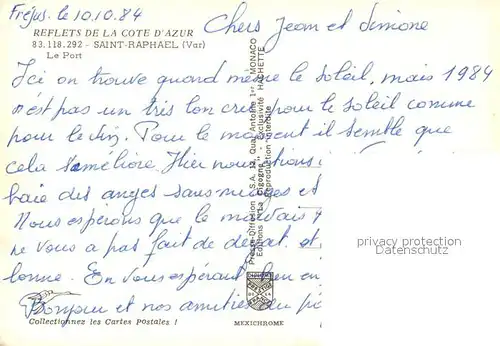 Fréjus. le 10.10.84
Chers Jean et Simone
REFLETS DE LA COTE D'AZUR
83.118.292 - SAINT-RAPHAEL (Var)
Le Port
Ici on trouve quand même le soleil, mais 1984
n'est pas un très bon cru pour le soleil comme
pour le vin. Pour le moment il semble que
cela s'améliore. Hier nous
baie des anges sans nuages et
Nous espérons que le mauvais
ne vous a pas fait de dégat. et
bonne. En vous espérant bien en
Bonjour et nos amitiés du
Collectionnez les Cartes Postales !
MEXICHROME
Presse-Direction S.A. 12, Quai Antoine 1er MONACO
Editions "La Cigogne" Exclusivité HACHETTE
Reproduction interdite
privacy protection
Datenschutz